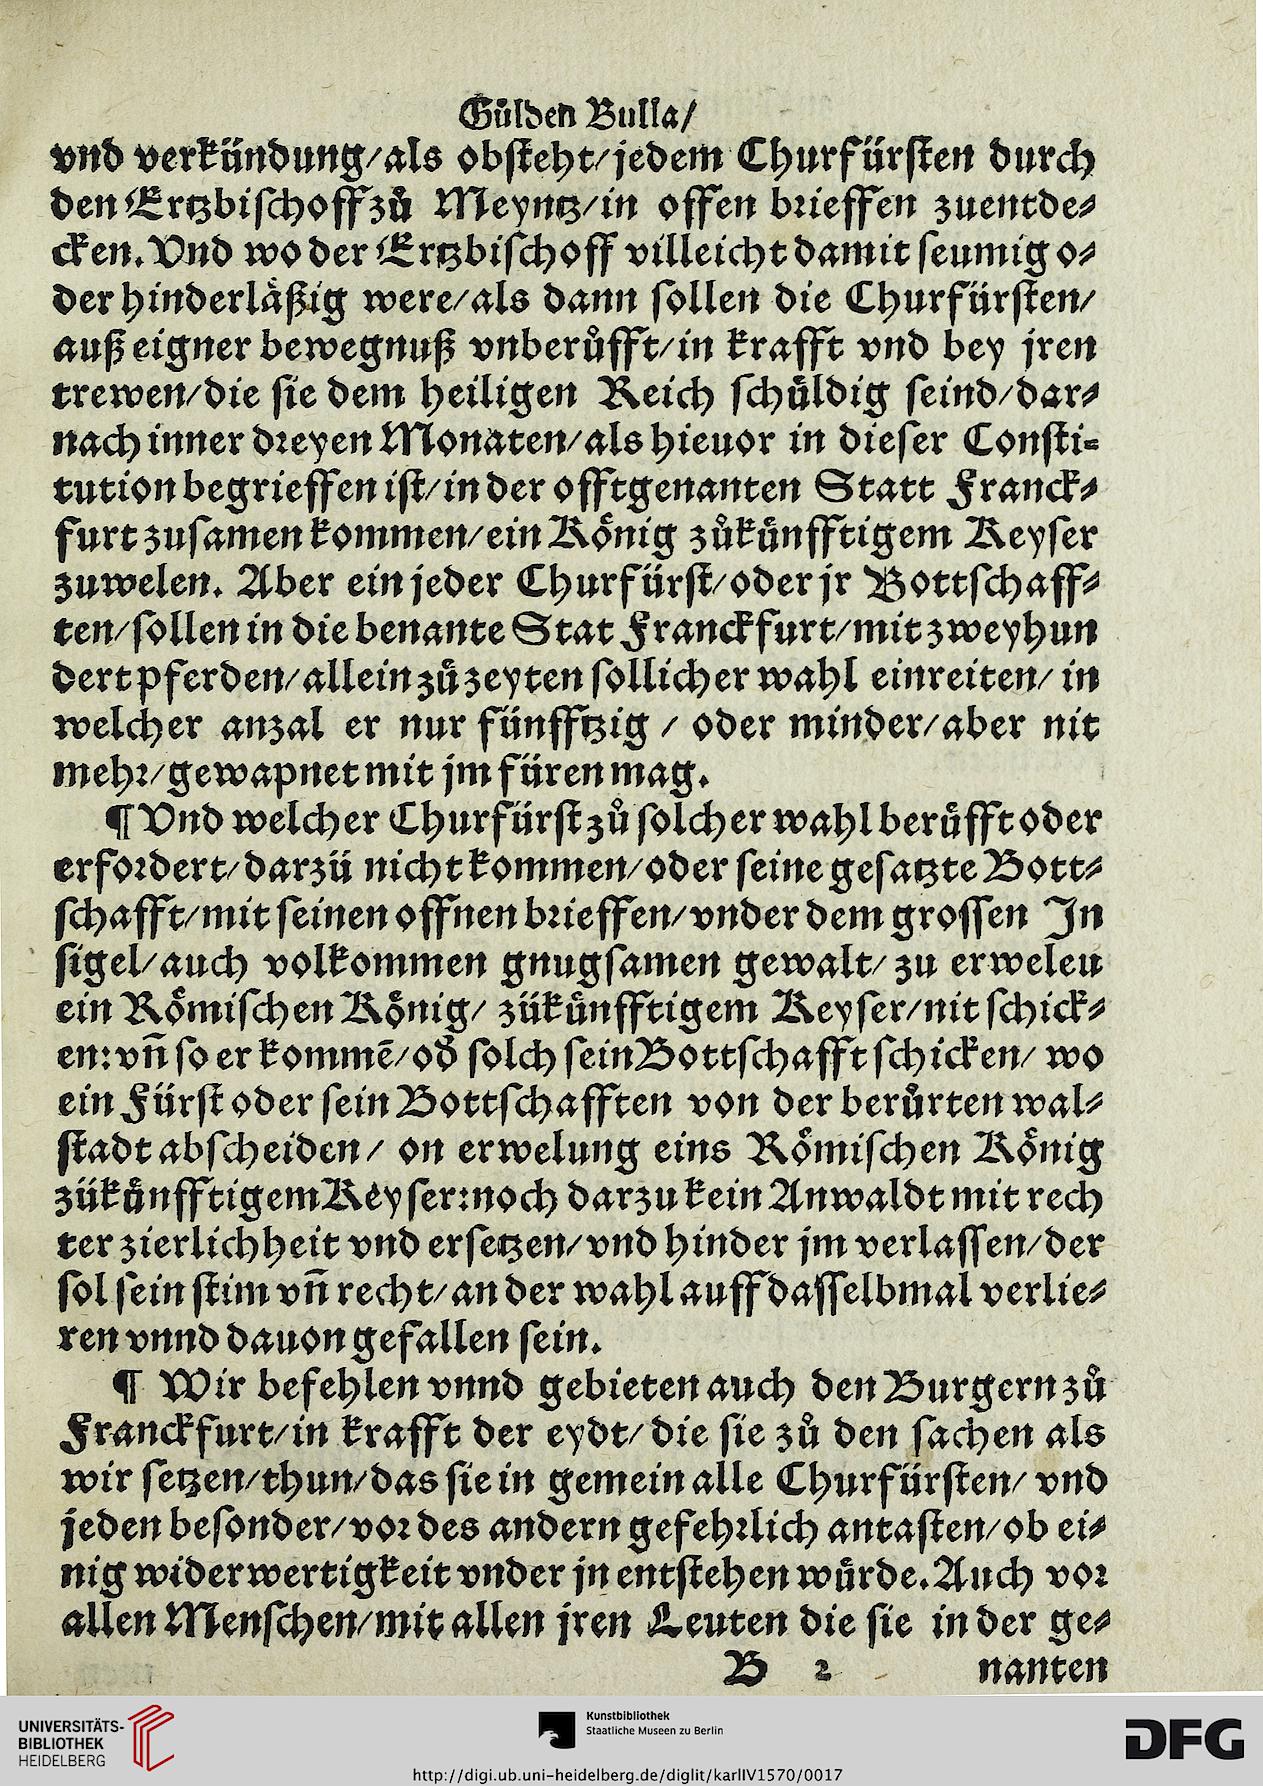 Gülden Bulla/
vnd verkündung/als obsteht/jedem Churfürsten durch
den Ertzbischoff zů Meyntz/in offen brieffen zuentde⸗
cken. Vnd wo der Ertzbischoff villeicht damit seumig o⸗
der hinderläßig were/als dann sollen die Churfürsten/
auß eigner bewegnuß vnberůfft/in krafft vnd bey jren
trewen/die sie dem heiligen Reich schuldig seind/dar⸗
nach inner dreyen Monaten/als hieuor in dieser Consti⸗
tution begrieffen ist/in der offtgenanten Statt Franck⸗
furt zusamen kommen/ein König zůkünfftigem Keyser
zuwelen. Aber ein jeder Churfürst/oder jr Bottschaff⸗
ten/sollen in die benante Stat Franckfurt/mit zweyhun
dert pferden/allein zů zeyten sollicher wahl einreiten/ in
welcher anzal er nur fünfftzig / oder minder/aber nit
mehr/gewapnet mit jm füren mag.
¶ Vnd welcher Churfürst zů solcher wahl berůfft oder
erfordert/darzü nicht kommen/oder seine gesatzte Bott⸗
schafft/mit seinen offnen brieffen/vnder dem grossen In
sigel/auch volkommen gnugsamen gewalt/ zu erweleu
ein Römischen König/ zükünfftigem Keyser/nit schick⸗
en: vñ so er kommē/od' solch sein Bottschafft schicken/ wo
ein Fürst oder sein Bottschafften von der berůrten wal⸗
stadt abscheiden/ on erwelung eins Römischen König
zükünfftigem Keyser: noch darzu kein Anwaldt mit rech
ter zierlichheit vnd ersetzen/vnd hinder jm verlassen/der
sol sein stim vñ recht/an der wahl auff dasselbmal verlie⸗
ren vnnd dauon gefallen sein.
¶ Wir befehlen vnnd gebieten auch den Burgern zů
Franckfurt/in krafft der eydt/ die sie zů den sachen als
wir setzen/thun/das sie in gemein alle Churfürsten/ vnd
jeden besonder/vor des andern gefehrlich antasten/ob ei⸗
nig widerwertigkeit vnder jn entstehen würde. Auch vor
allen Menschen/mit allen jren Leuten die sie in der ge⸗
B 2 nanten
UNIVERSITÄTS-
BIBLIOTHEK
HEIDELBERG
Kunstbibliothek
Staatliche Museen zu Berlin
DFG
http://digi.ub.uni-heidelberg.de/diglit/karlIV1570/0017